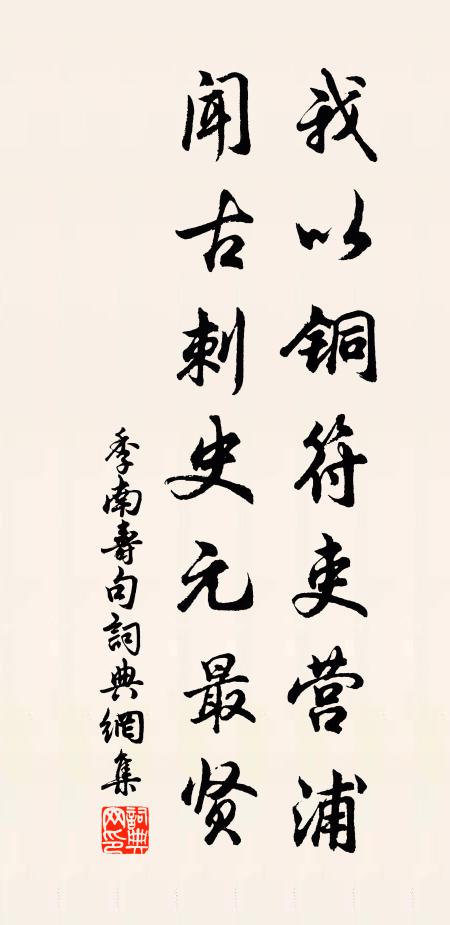 我以铜符吏营浦
闻古刺史元最贤
季南寿句詞典網集
詞典网印